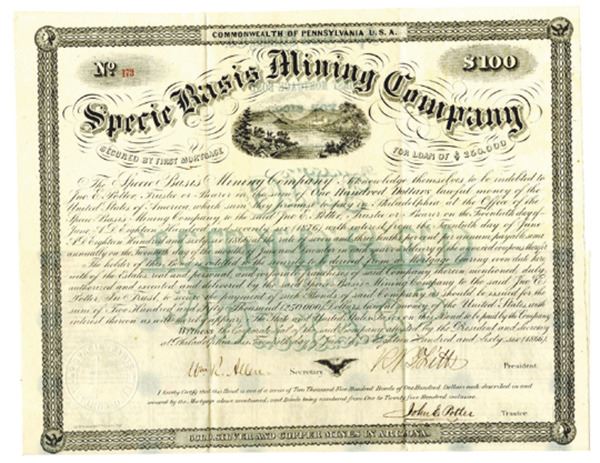 COMMONWEALTH OF PENNSYLVANIA U.S.A.
No 173
$100
Specie Basis Mining Company
SECURED BY FIRST MORTGAGE
FOR LOAN OF $250,000
The Specie Basis Mining Company Acknowledge themselves to be indebted to
Jno E. Potter, Trustee or Bearer in the sum of One Hundred Dollars lawful money of the
United States of America which sum they promise to pay in Philadelphia at the Office of the
Specie Basis Mining Company to the said Jno E. Potter, Trustee or Bearer on the Twentieth day of
June A.D. Eighteen Hundred and seventy six (1876) with interest from the Twentieth day of June
A.D. Eighteen Hundred and sixty six (1866) at the rate of seven and three tenths per cent per annum payable semi
annually on the Twentieth day of the months of June and December in each year on delivery of the annexed coupons therefor
The holder of this Bond is entitled to the security to be derived from a Mortgage bearing even date here
with of the Estates, real and personal, and corporate franchises of said Company therein mentioned, duly
authorized and executed and delivered by the said Specie Basis Mining Company to the said Jno E.
Potter In Trust, to secure the payment of such Bonds of said Company as should be issued for the
sum of Two Hundred and Fifty Thousand (250,000) Dollars lawful money of the United States with
interest thereon as
State and United States Taxes on this Bond to be paid by the Company
Witness the Corporate seal of the said Company attested by the President and Secretary
at Philadelphia this Twentieth day of June A.D. Eighteen Hundred and Sixty six (1866)
Wm R. Allen
Secretary
President
I hereby Certify that this Bond is one of a series of Two Thousand Five Hundred Bonds of One Hundred Dollars each described in and
secured by the Mortgage above mentioned, said Bonds being numbered from One to Twenty five Hundred inclusive
John E Potter
Trustee
GOLD, SILVER AND COPPER MINES IN ARIZONA.